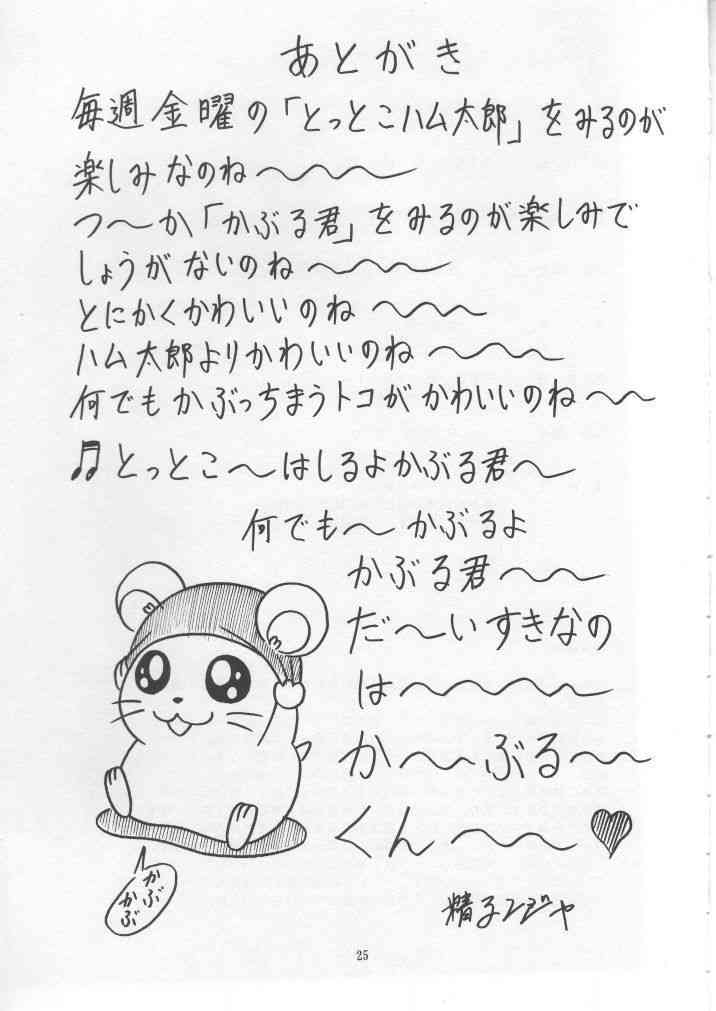 あとがき
毎週金曜の「とっとこハム太郎」をみるのが
楽しみなのね〜〜〜〜
つ〜か「かぶる君」をみるのが楽しみで
しょうがないのね〜〜〜〜
とにかくかわいいのね〜〜〜
ハム太郎よりかわいいのね〜〜〜
何でもかぶっちまうトコがかわいいのね〜〜
♫とっとこ〜はしるよかぶる君〜
何でも〜かぶるよ
かぶる君〜〜〜
だ〜いすきなの
は〜〜〜〜〜
か〜〜ぶる〜〜
くん〜〜〜♥
かぶ
かぶ
精子ンジャ
25